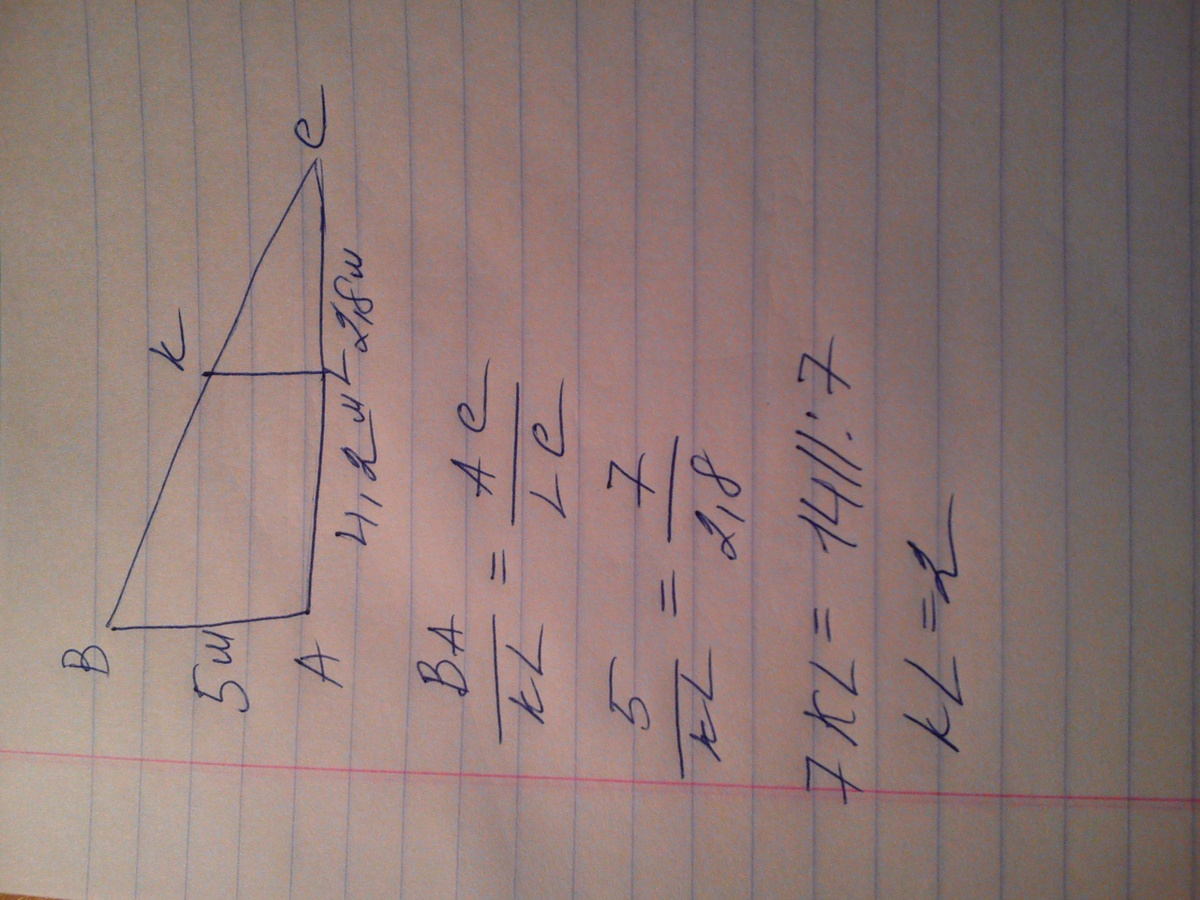 B
K
C
5м
A
4,2м
L
2,8м
BA/KL = AC/LC
5/KL = 7/2,8
7KL = 14 //:7
KL = 2